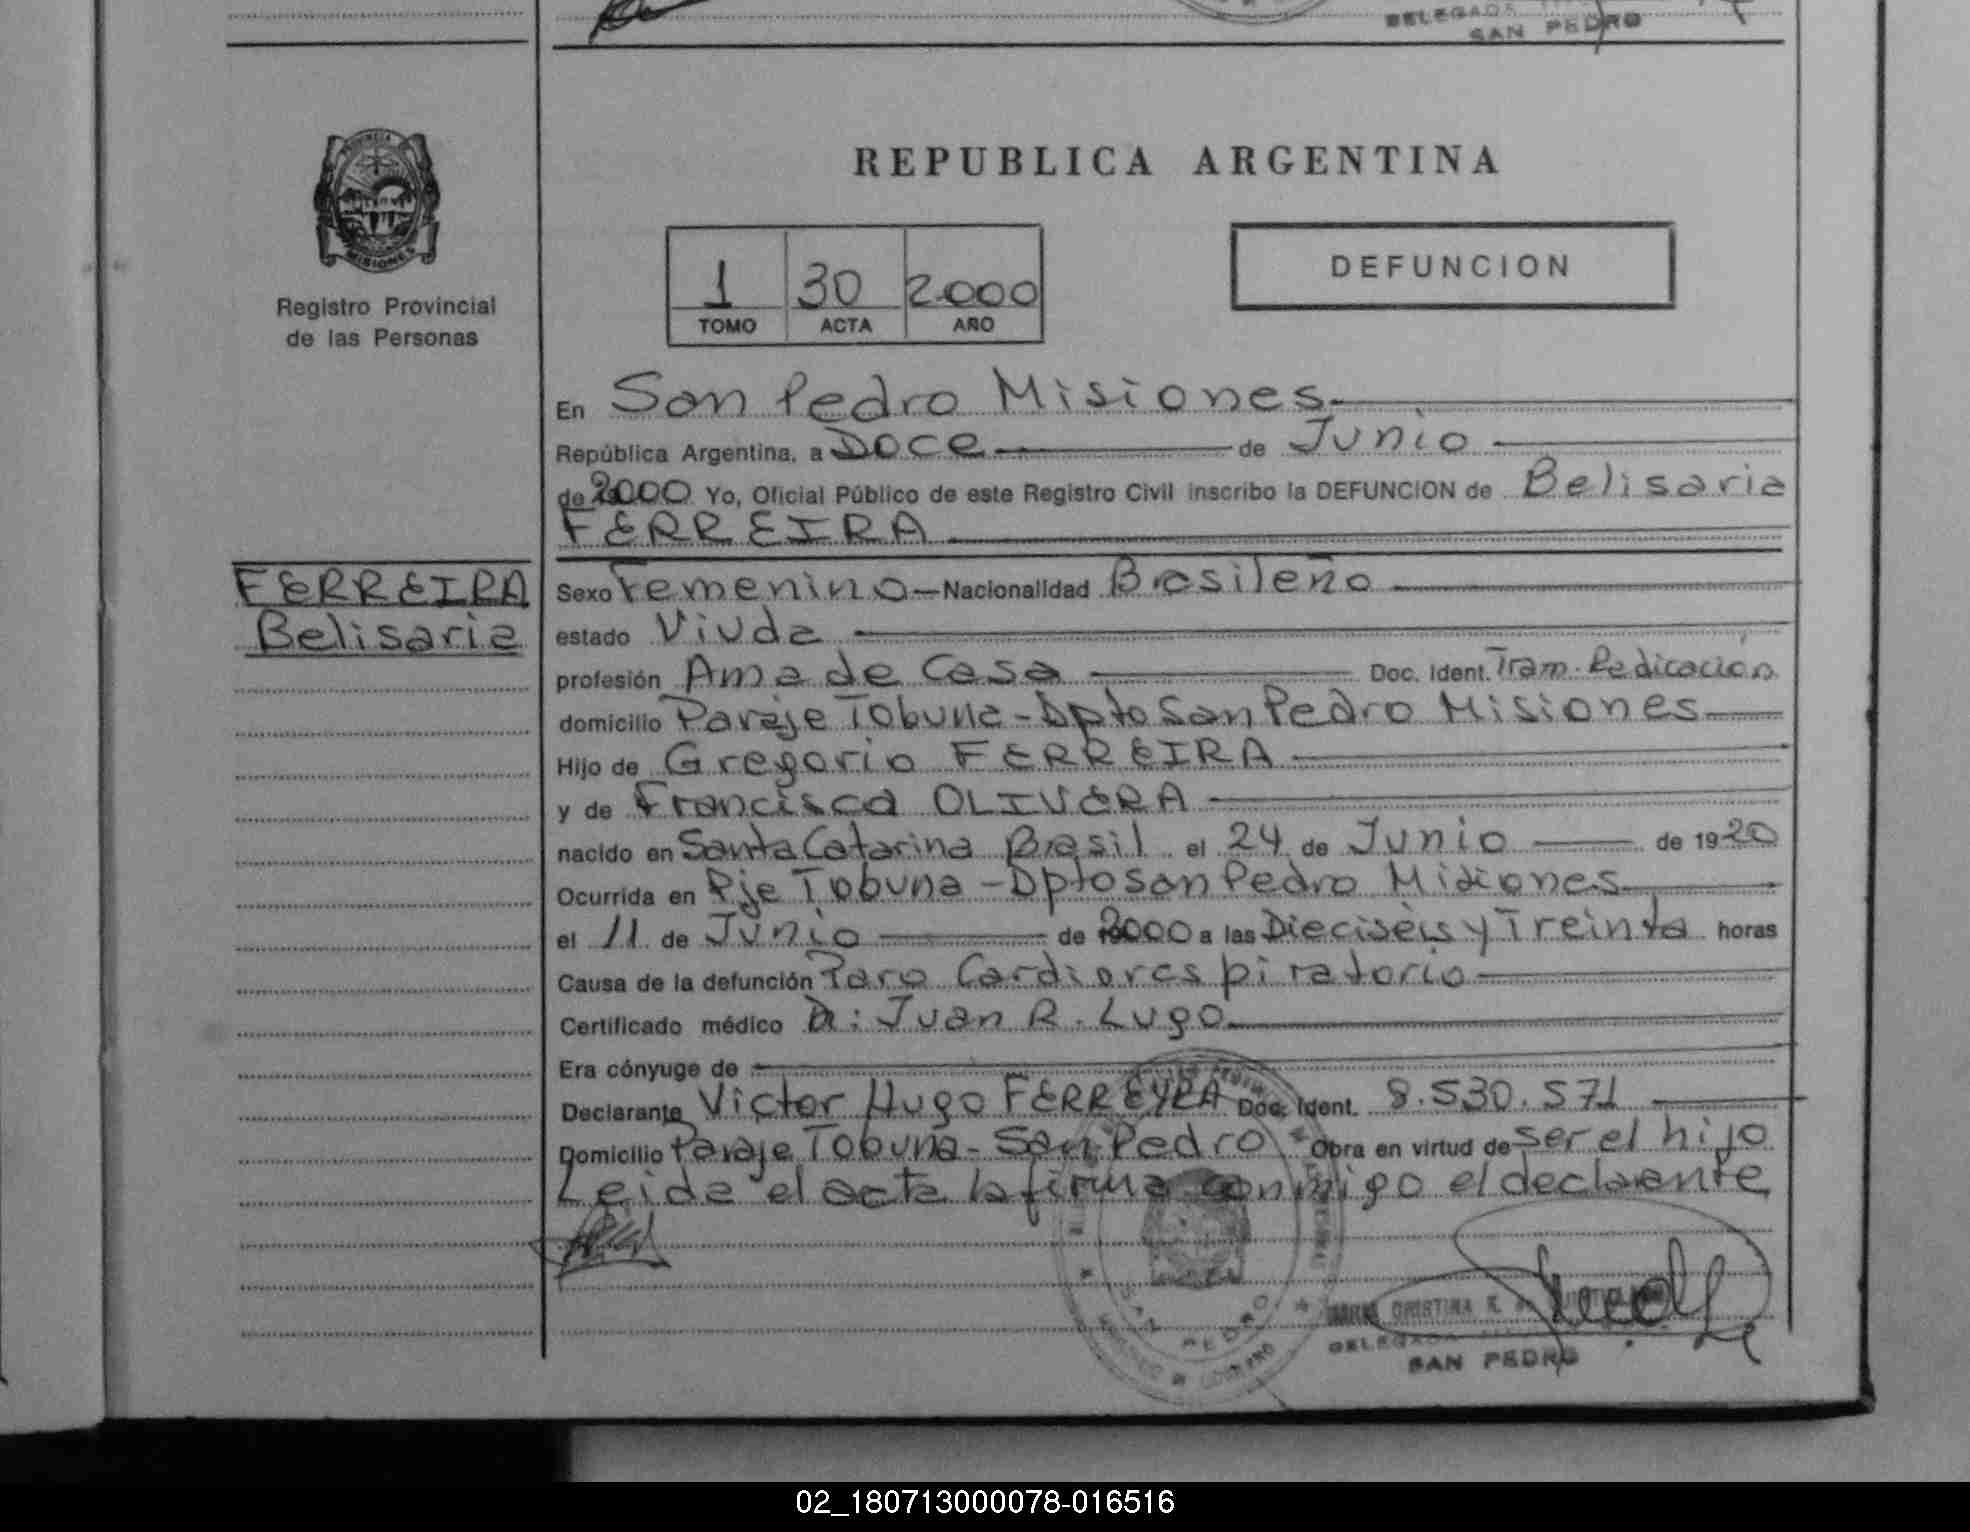 DELEGADA
SAN PEDRO
PROVINCIA
MISIONES
Registro Provincial
de las Personas
REPUBLICA ARGENTINA
1 30 2000
TOMO ACTA AÑO
DEFUNCION
En San Pedro Misiones
República Argentina, a Doce de Junio
de 2000 Yo, Oficial Público de este Registro Civil inscribo la DEFUNCION de Belisaria
FERREIRA
FERREIRA
Belisaria
Sexo Femenino Nacionalidad Brasileño
estado Viuda
profesión Ama de Casa Doc. Ident. Tram. Radicación
domicilio Paraje Tobuna - Dpto San Pedro Misiones
Hijo de Gregorio FERREIRA
y de Francisca OLIVERA
nacido en Santa Catarina Brasil el 24 de Junio de 1920
Ocurrida en Pje Tobuna - Dpto San Pedro Misiones
el 11 de Junio de 2000 a las Dieciséis y Treinta horas
Causa de la defunción Paro Cardiorespiratorio
Certificado médico Dr: Juan R. Lugo
Era cónyuge de
Declarante Victor Hugo FERREYRA Doc. Ident. 8.530.571
Domicilio Paraje Tobuna - San Pedro Obra en virtud de ser el hijo
Leida el acta la firma conmigo el declarante
SAN PEDRO
CRISTINA
DELEGADA
SAN PEDRO
02_180713000078-016516